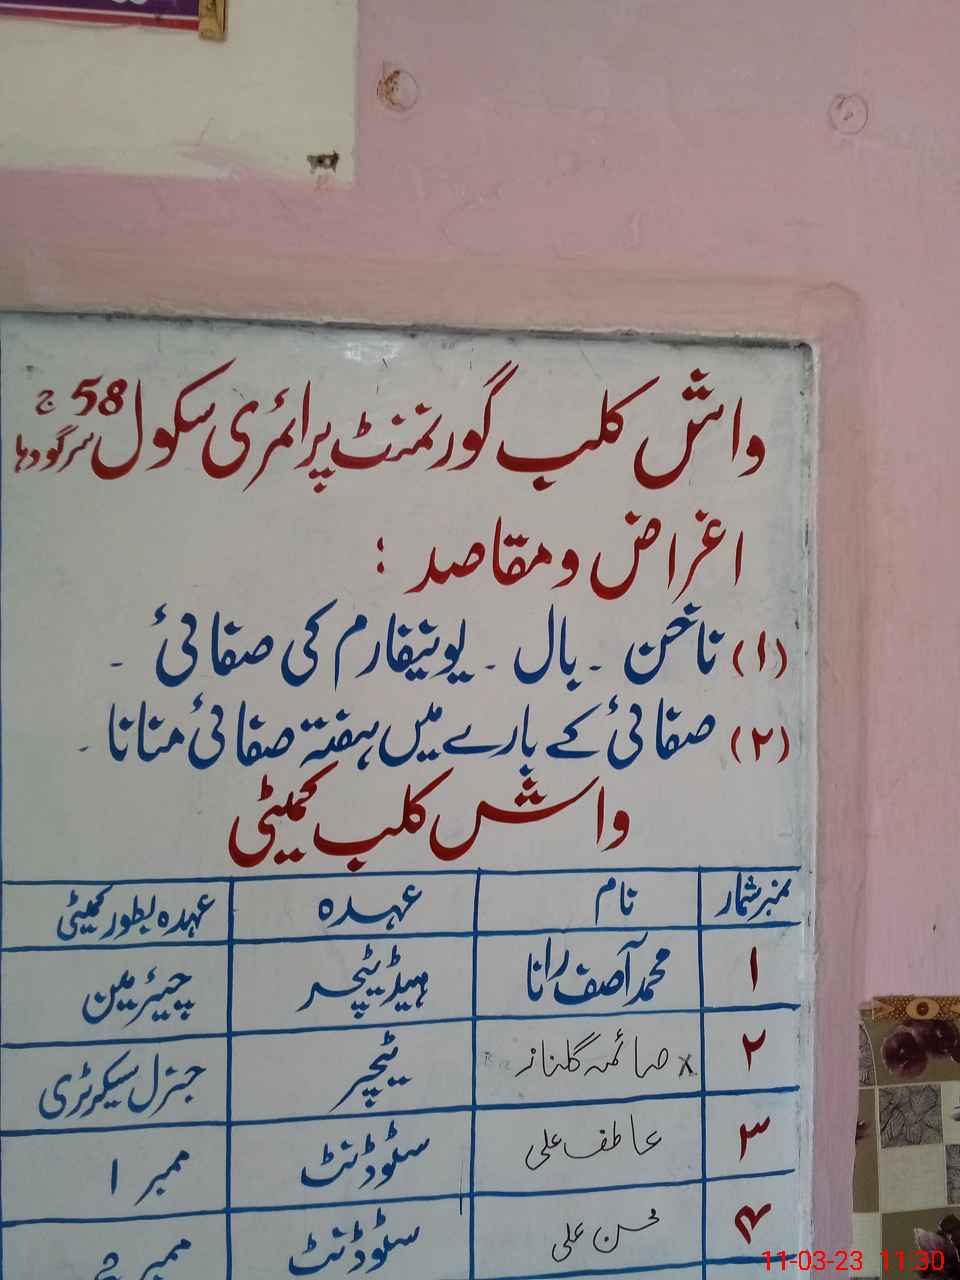 واش کلب گورنمنٹ پرائمری سکول 58 ج سرگودہا
اغراض و مقاصد :
(۱) ناخن ۔ بال ۔ یونیفارم کی صفائی ۔
(۲) صفائی کے بارے میں ہفتہ صفائی منانا ۔
واش کلب کمیٹی
نمبرشمار نام عہدہ عہدہ بطور کمیٹی
۱ محمد آصف رانا ہیڈ ٹیچر چیئرمین
۲ x صائمہ گلناز ٹیچر جنرل سیکرٹری
۳ عاطف علی سٹوڈنٹ ممبر 1
۴ محسن علی سٹوڈنٹ ممبر 2
11-03-23 11:30